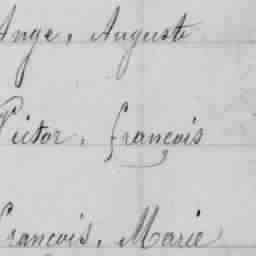 Ange, Auguste
Victor, françois
François, Marie